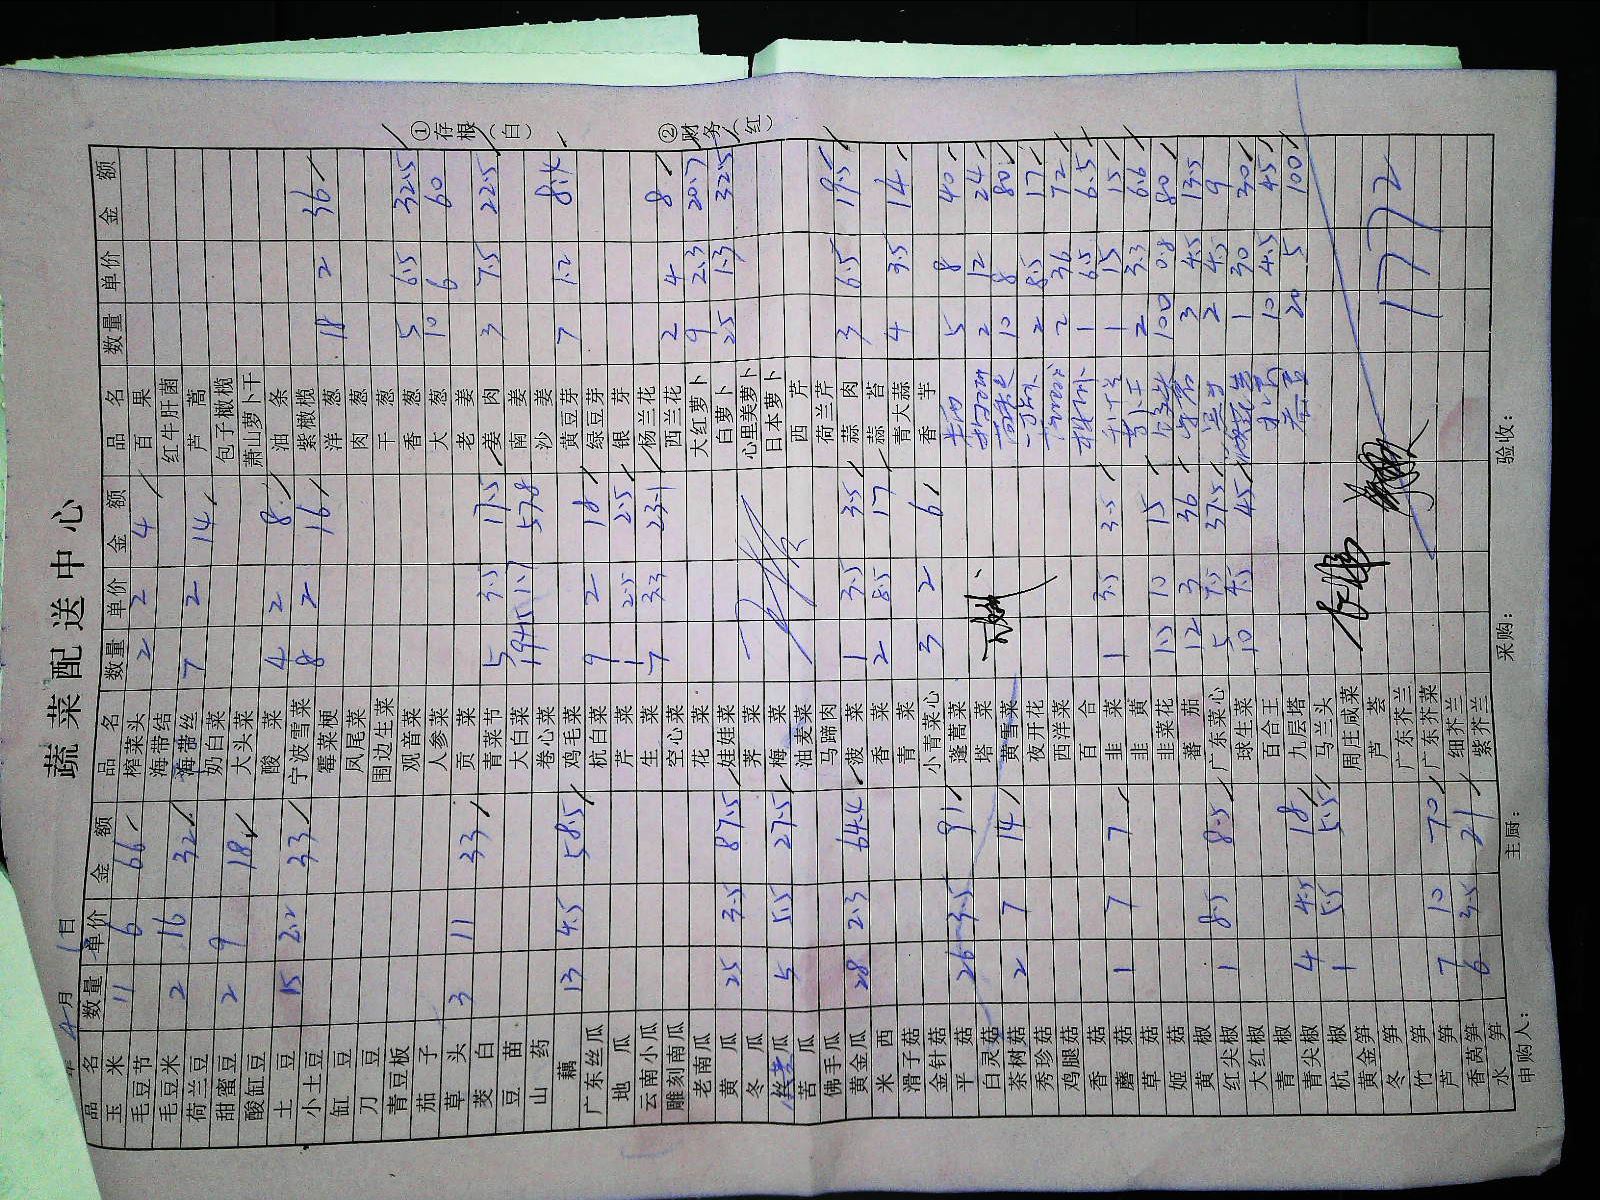 蔬菜配送中心
年 4月 1日
品名 数量 单价 金额 品名 数量 单价 金额 品名 数量 单价 金额
玉米 11 6 66 榨菜头 2 2 4 百果
毛豆节 海带结 红牛肝菌
毛豆米 2 16 32 海带丝 7 2 14 芦蒿
荷兰豆 奶白菜 包子橄榄
甜蜜豆 2 9 18 大头菜 萧山萝卜干
酸豇豆 酸菜 4 2 8 油条
土豆 15 2.2 33 宁波雪菜 8 2 16 紫橄榄
小土豆 霉菜梗 洋葱 18 2 36
豇豆 凤尾菜 肉葱
刀豆 围边生菜 干葱
青豆板 观音菜 香葱 5 6.5 32.5
茄子 人参菜 大葱 10 6 60
草头 3 11 33 贡菜 老姜
茭白 青菜节 5 3.5 17.5 姜肉 3 7.5 22.5
豆苗 大白菜 1.7 57.8 南姜
山药 卷心菜 沙姜
藕 13 4.5 58.5 鸡毛菜 黄豆芽 7 1.2 8.4
广东丝瓜 杭白菜 9 2 18 绿豆芽
地瓜 芹菜 1 2.5 2.5 银芽
云南小瓜 生菜 7 3.3 23.1 杨兰花
雕刻南瓜 空心菜 西兰花 2 4 8
老南瓜 花菜 大红萝卜 9 2.3 20.7
黄瓜 25 3.5 87.5 娃娃菜 白萝卜 25 1.3 32.5
冬瓜 荠菜 心里美萝卜
丝瓜 5 5.5 27.5 梅菜 日本萝卜
苦瓜 油麦菜 西芹
佛手瓜 马蹄肉 荷兰芹
黄金瓜 28 2.3 64.4 菠菜 1 3.5 3.5 蒜肉 3 6.5 19.5
米西 香菜 2 8.5 17 蒜苔
滑子菇 青菜 青大蒜 4 3.5 14
金针菇 小青菜心 3 2 6 香芋
平菇 26 3.5 91 蓬蒿菜 5 8 40
白灵菇 塔菜 2 12 24
茶树菇 2 7 14 黄雪菜 10 8 80
秀珍菇 夜开花 2 8.5 17
鸡腿菇 西洋菜 2 36 72
香菇 百合 1 6.5 6.5
蘑菇 1 7 7 韭菜 1 3.5 3.5 1 15 15
草菇 韭黄 2 3.3 6.6
姬菇 韭菜花 1.5 10 15 100 0.8 80
黄椒 蕃茄 12 3 36 3 4.5 13.5
红尖椒 1 8.5 8.5 广东菜心 5 7.5 37.5 2 4.5 9
大红椒 球生菜 10 4.5 45 1 30 30
青椒 百合王 10 4.5 45
青尖椒 4 4.5 18 九层塔 20 5 100
杭椒 1 5.5 5.5 马兰头
黄金笋 周庄咸菜
冬笋 芦荟
竹笋 广东芥兰 1772
芦笋 7 10 70 广东芥菜
香莴笋 6 3.5 21 细芥兰
水笋 紫芥兰
申购人： 主厨： 采购： 验收：
①存根（白）
②财务（红）